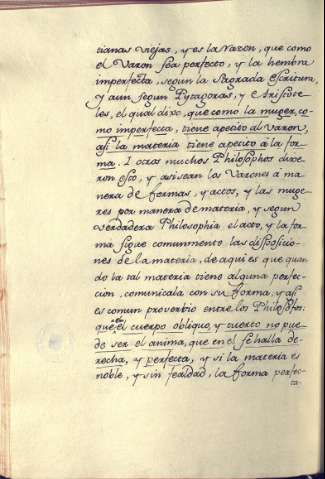 tianas viejas, y es la razon, que como
el Varon sea perfecto, y la hembra
imperfecta, segun la Sagrada escritura,
y aun segun Pytagoras, y Aristote-
les, el qual dixo, que como la muger, co-
mo imperfecta, tiene apetito al Varon,
assi la materia tiene apetito à la for-
ma. I otros muchos Philosophos dixe-
ron esto, y assi son los Varones á ma
nera de formas, y actos, y las muge
res por manera de materia, y segun
verdadera Philosophia el acto, y la for
ma sigue comunmente las disposicio-
nes de la materia, de aqui es que quan
do la tal materia tiene alguna perfec-
cion, comunicala con su forma, y assi
es comun proverbio entre los Philosofos:
que en el cuerpo obliquo, y tuerto no pue-
de ser el anima, que en el se halla de-
recha, y perfecta, y si la materia es
noble, y sin fealdad, la forma perfec-
ta